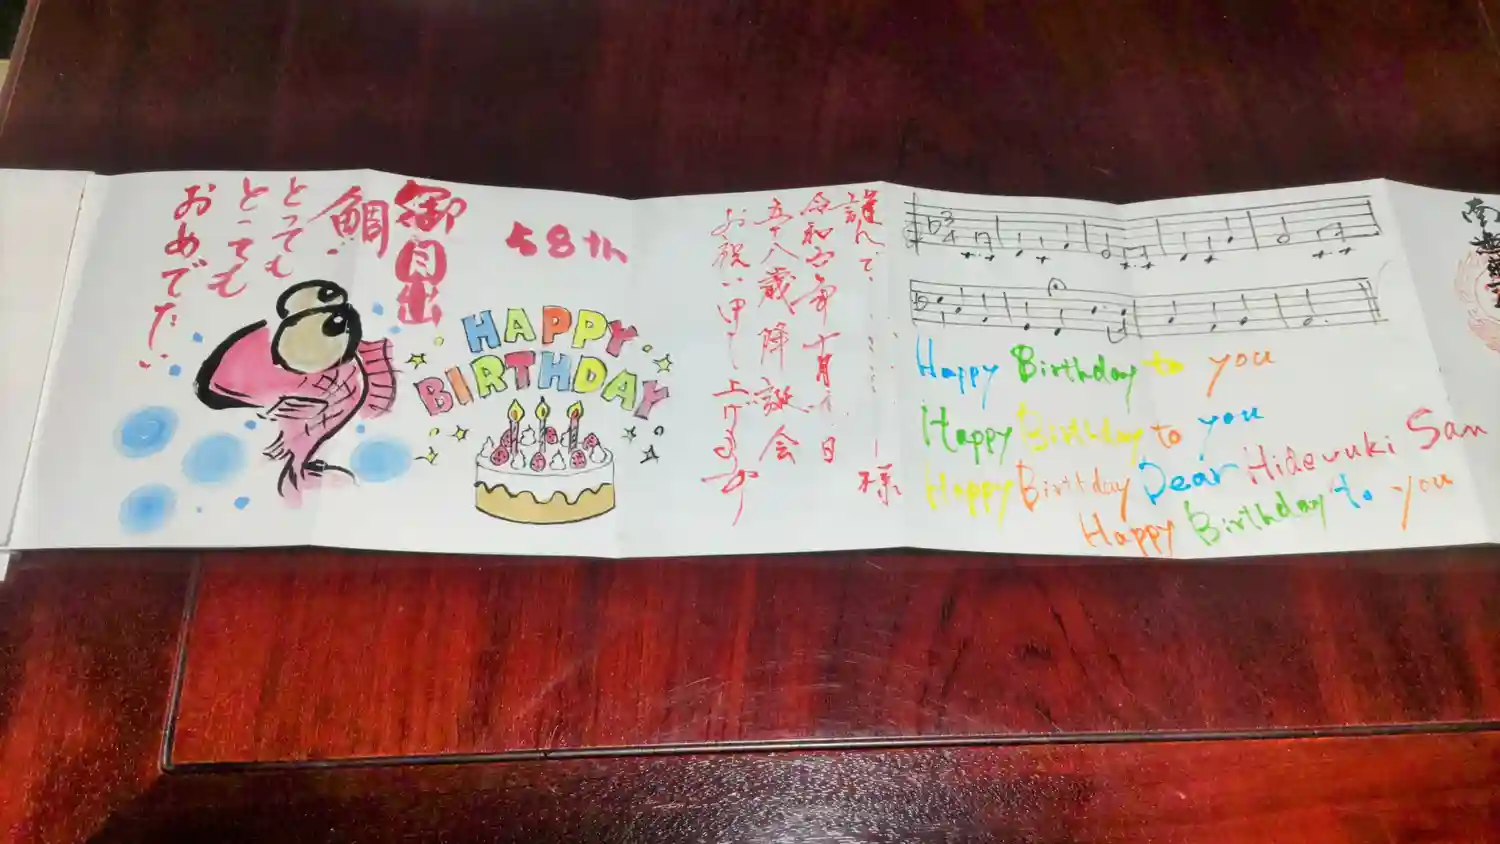 御目出
鯛
とっても
とっても
おめでたい
58th
HAPPY
BIRTHDAY
謹んで、
様
令和四年十月 日
五十八歳降誕会
お祝い申し上げます
Happy Birthday to you
Happy Birthday to you
Happy Birthday Dear Hideyuki San
Happy Birthday to you
南無